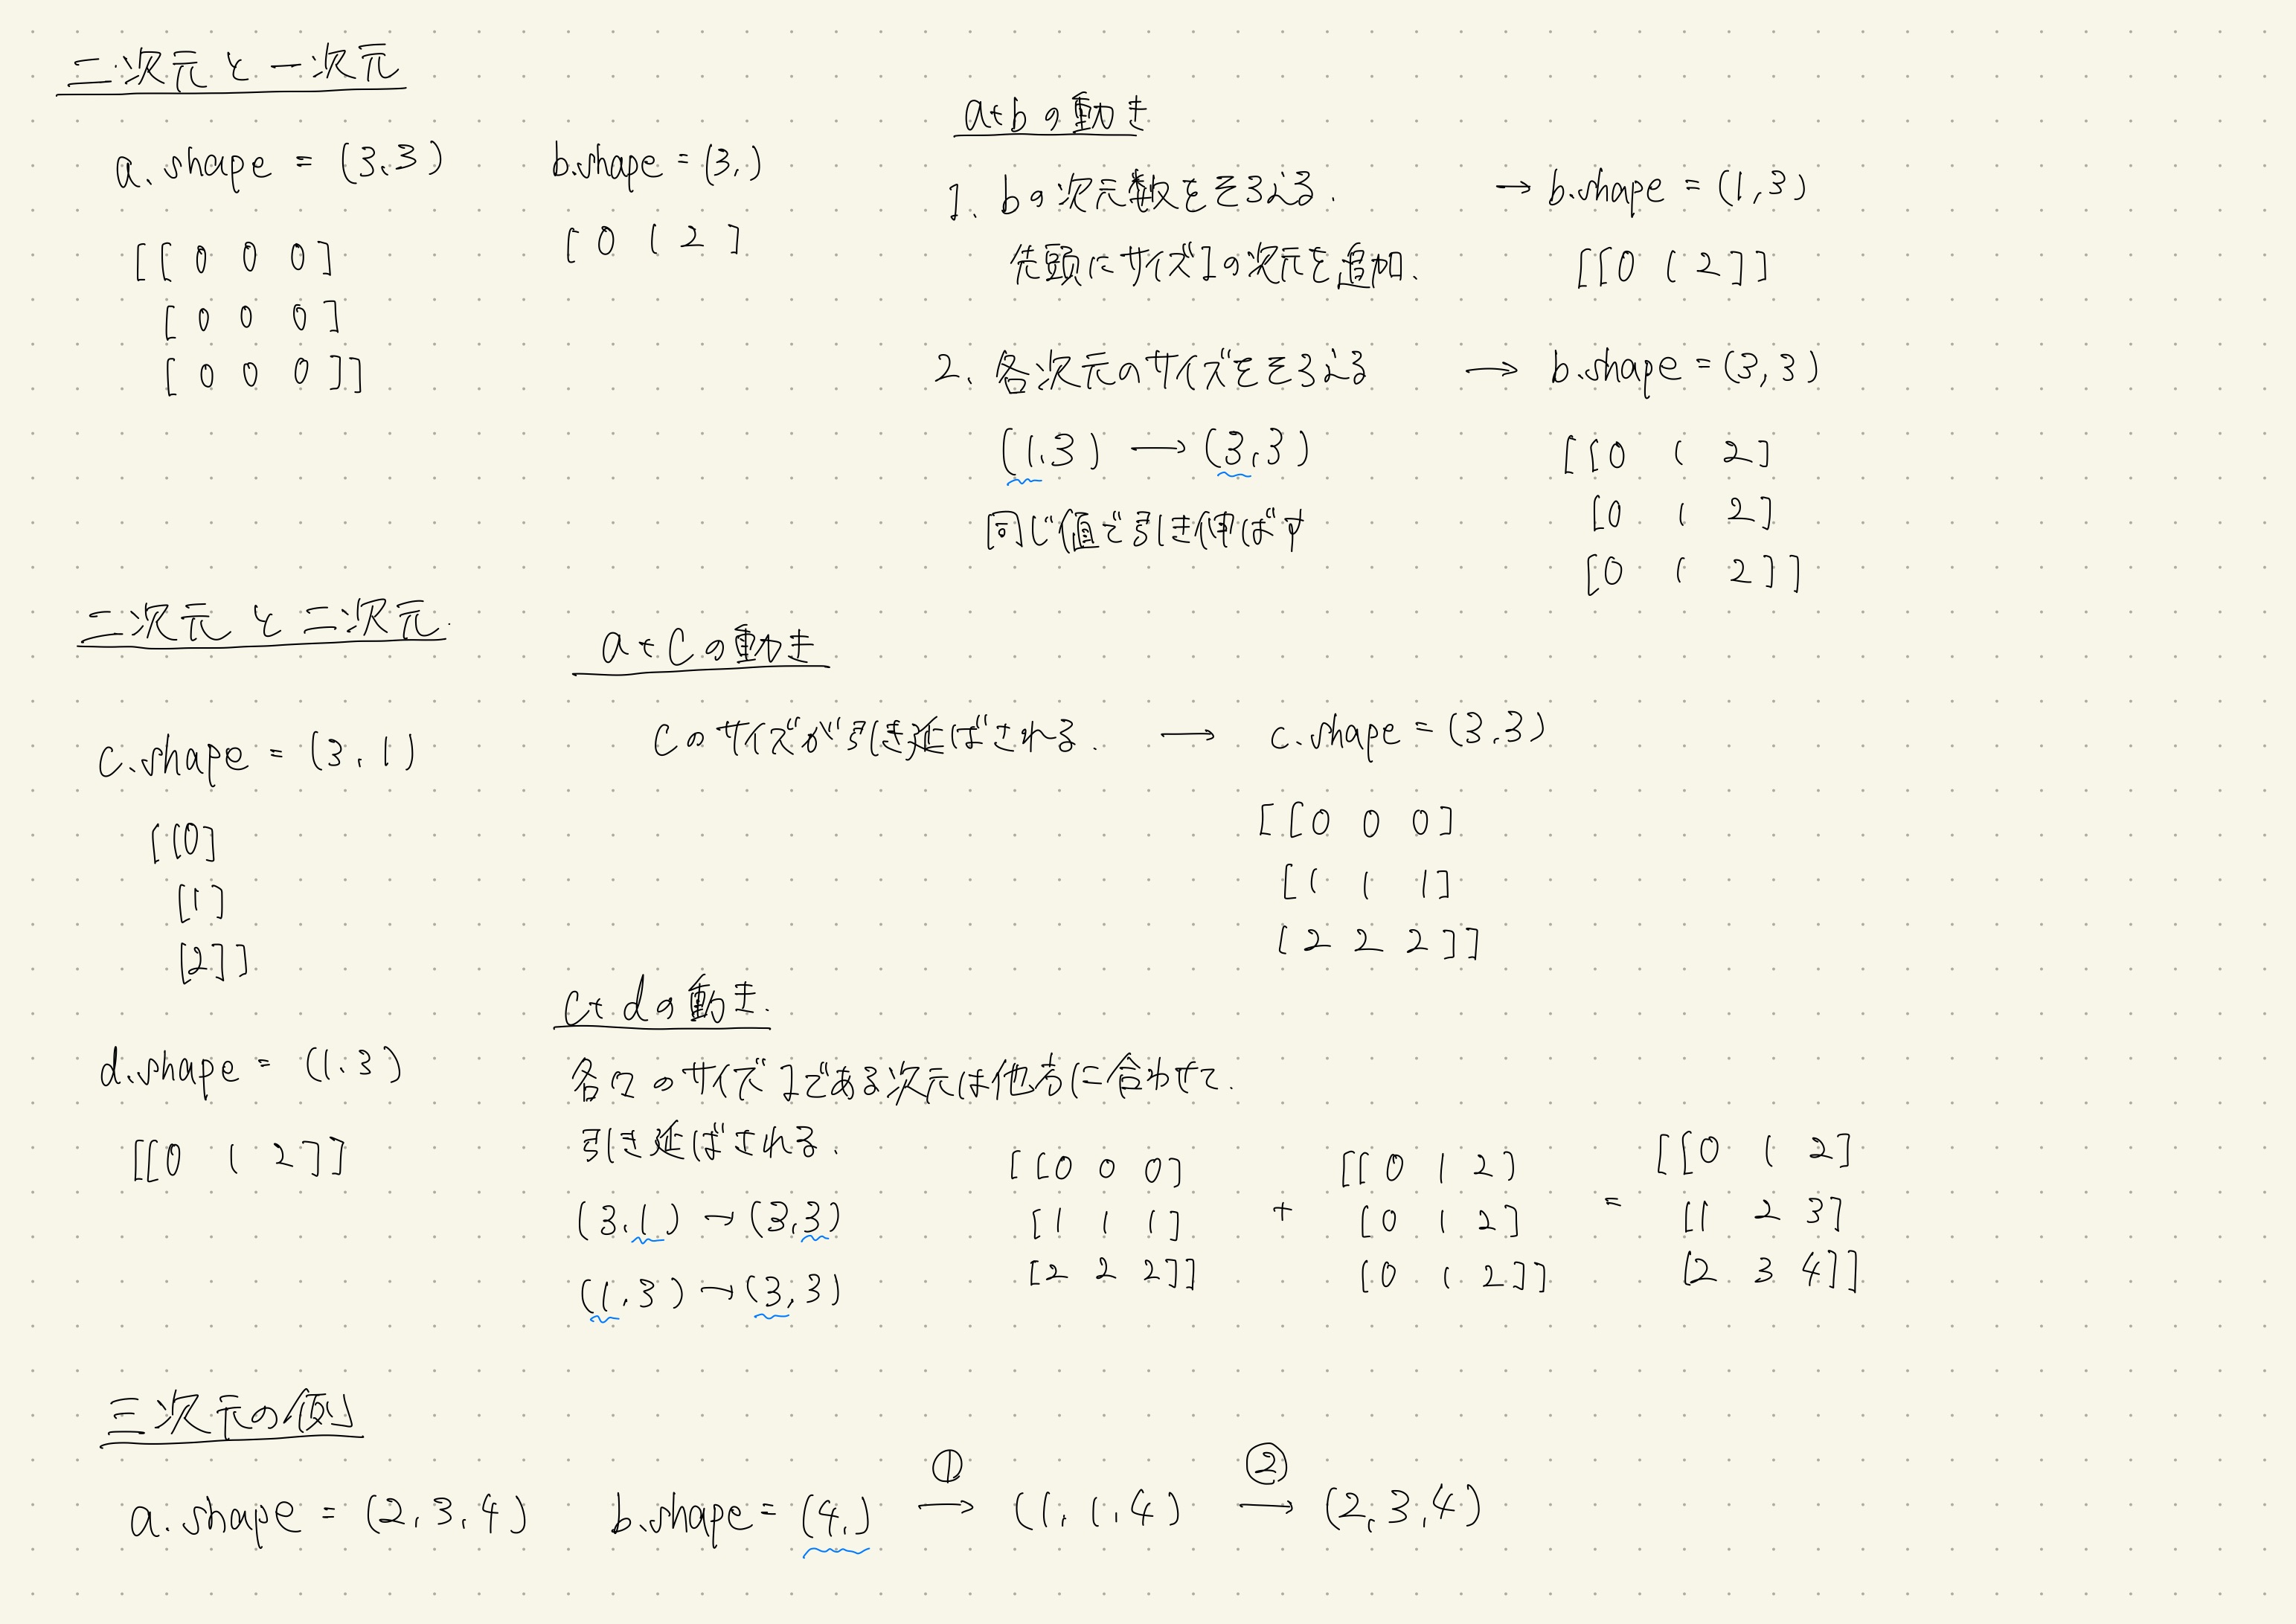 二次元と一次元
a.shape = (3,3)
[[0 0 0]
[0 0 0]
[0 0 0]]
b.shape = (3,)
[0 1 2]
a+bの動き
1. bの次元数をそろえる.
先頭にサイズ1の次元を追加.
→ b.shape = (1,3)
[[0 1 2]]
2. 各次元のサイズをそろえる
(1,3) → (3,3)
同じ値で引き伸ばす
→ b.shape = (3,3)
[[0 1 2]
[0 1 2]
[0 1 2]]
二次元と二次元.
c.shape = (3,1)
[[0]
[1]
[2]]
a+cの動き
cのサイズが引き延ばされる. → c.shape = (3,3)
[[0 0 0]
[1 1 1]
[2 2 2]]
d.shape = (1,3)
[[0 1 2]]
c+dの動き.
各々のサイズ1である次元は他方に合わせて.
引き延ばされる.
(3,1) → (3,3)
(1,3) → (3,3)
[[0 0 0] [[0 1 2] [[0 1 2]
[1 1 1] + [0 1 2] = [1 2 3]
[2 2 2]] [0 1 2]] [2 3 4]]
三次元の例
a.shape = (2,3,4) b.shape = (4,) ①→ (1,1,4) ②→ (2,3,4)